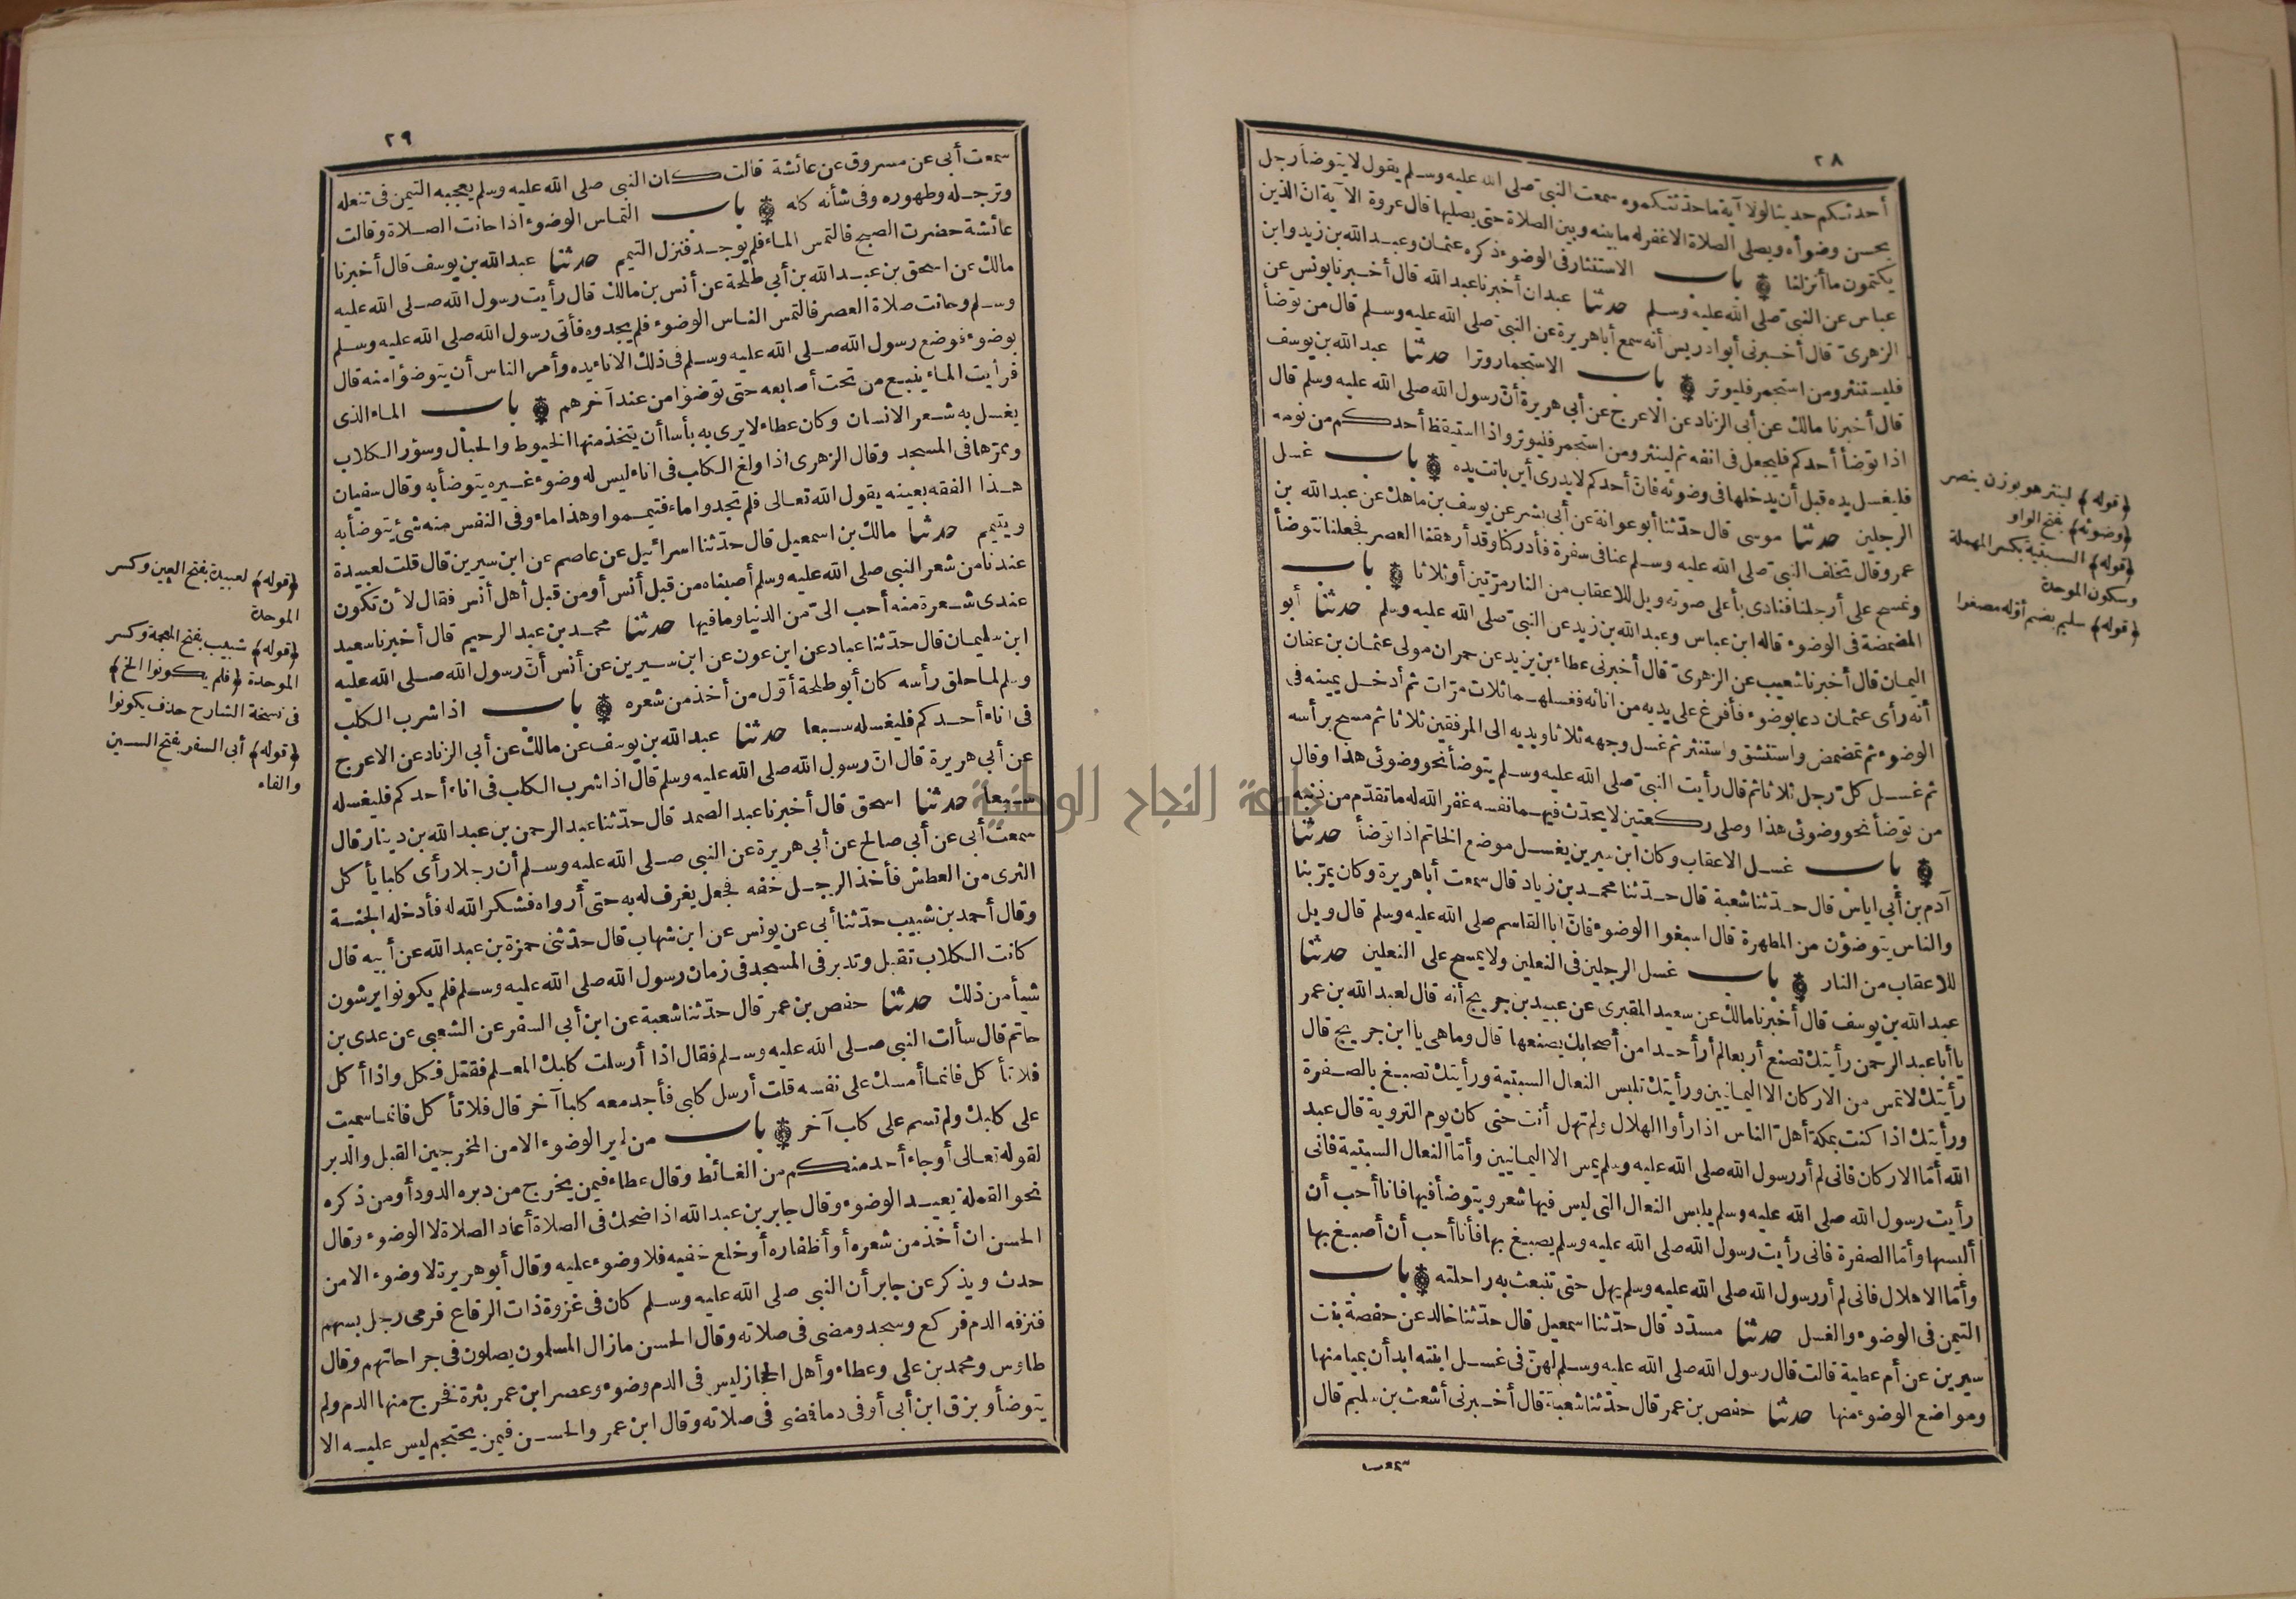 ٢٨
أحدثكم حديثا لولا آية ما حدثتكموه سمعت النبي صلى الله عليه وسلم يقول لا يتوضأ رجل
يحسن وضوأه ويصلى الصلاة الا غفر له ما بينه وبين الصلاة حتى يصليها قال عروة الآية ان الذين
يكتمون ما أنزلنا باب الاستنثار فى الوضوء ذكره عثمان وعبد الله بن زيد وابن
عباس عن النبى صلى الله عليه وسلم حدثنا عبدان أخبرنا عبد الله قال أخبرنا يونس عن
الزهرى قال أخبرنى أبو ادريس أنه سمع أبا هريرة عن النبى صلى الله عليه وسلم قال من توضأ
فليستنثر ومن استجمر فليوتر باب الاستجمار وترا حدثنا عبد الله بن يوسف
قال أخبرنا مالك عن أبى الزناد عن الاعرج عن أبى هريرة أن رسول الله صلى الله عليه وسلم قال
اذا توضأ أحدكم فليجعل فى انفه ثم لينثر ومن استجمر فليوتر واذا استيقظ أحدكم من نومه
فليغسل يده قبل أن يدخلها فى وضوئه فان أحدكم لا يدرى أين باتت يده باب غسل
الرجلين حدثنا موسى قال حدّثنا أبو عوانة عن أبى بشر عن يوسف بن ماهك عن عبد الله بن
عمرو قال تخلف النبى صلى الله عليه وسلم عنا فى سفرة فأدركنا وقد أرهقنا العصر فجعلنا نتوضأ
ونمسح على أرجلنا فنادى بأعلى صوته ويل للاعقاب من النار مرّتين أو ثلاثا باب
المضمضة فى الوضوء قاله ابن عباس وعبد الله بن زيد عن النبى صلى الله عليه وسلم حدثنا أبو
اليمان قال أخبرنا شعيب عن الزهرى قال أخبرنى عطاء بن يزيد عن حمران مولى عثمان بن عفان
أنه رأى عثمان دعا بوضوء فأفرغ على يديه من انائه فغسلهما ثلاث مرّات ثم أدخل يمينه فى
الوضوء ثم تمضمض واستنشق واستنثر ثم غسل وجهه ثلاثا ويديه الى المرفقين ثلاثا ثم مسح برأسه
ثم غسل كل رجل ثلاثا ثم قال رأيت النبى صلى الله عليه وسلم يتوضأ نحو وضوئى هذا وقال
من توضأ نحو وضوئى هذا وصلى ركعتين لا يحدّث فيهما نفسه غفر الله له ما تقدّم من ذنبه
باب غسل الاعقاب وكان ابن سيرين يغسل موضع الخاتم اذا توضأ حدثنا
آدم بن أبى اياس قال حدّثنا شعبة قال حدّثنا محمد بن زياد قال سمعت أبا هريرة وكان يمرّ بنا
والناس يتوضؤن من المطهرة قال اسبغوا الوضوء فان ابا القاسم صلى الله عليه وسلم قال ويل
للاعقاب من النار باب غسل الرجلين فى النعلين ولا يمسح على النعلين حدثنا
عبد الله بن يوسف قال أخبرنا مالك عن سعيد المقبرى عن عبيد بن جريج أنه قال لعبد الله بن عمر
يا أبا عبد الرحمن رأيتك تصنع أربعا لم أر أحدا من أصحابك يصنعها قال وما هى يا ابن جريج قال
رأيتك لا تمس من الاركان الا اليمانيين ورأيتك تلبس النعال السبتية ورأيتك تصبغ بالصفرة
ورأيتك اذا كنت بمكة أهلّ الناس اذا رأوا الهلال ولم تهل أنت حتى كان يوم التروية قال عبد
الله أمّا الاركان فانى لم أر رسول الله صلى الله عليه وسلم يمس الا اليمانيين وأمّا النعال السبتية فانى
رأيت رسول الله صلى الله عليه وسلم يلبس النعال التى ليس فيها شعر ويتوضأ فيها فانا أحب أن
ألبسها وأمّا الصفرة فانى رأيت رسول الله صلى الله عليه وسلم يصبغ بها فأنا أحب أن أصبغ بها
وأمّا الاهلال فانى لم أر رسول الله صلى الله عليه وسلم يهل حتى تنبعث به راحلته باب
التيمن فى الوضوء والغسل حدثنا مسدّد قال حدّثنا اسمعيل قال حدّثنا خالد عن حفصة بنت
سيرين عن أم عطية قالت قال رسول الله صلى الله عليه وسلم لهنّ فى غسل ابنته ابدأن بميامنها
ومواضع الوضوء منها حدثنا حفص بن عمر قال حدّثنا شعبة قال أخبرنى أشعث بن سليم قال
سمعت
﴿قوله﴾ لينثر هو بوزن ينصر
﴿وضوئه﴾ بفتح الواو
﴿قوله﴾ السبتية بكسر المهملة
وسكون الموحدة
﴿قوله﴾ سليم بضم أوّله مصغرا
٢٩
سمعت أبى عن مسروق عن عائشة قالت كان النبى صلى الله عليه وسلم يعجبه التيمن فى تنعله
وترجله وطهوره وفى شأنه كله باب التماس الوضوء اذا حانت الصلاة وقالت
عائشة حضرت الصبح فالتمس الماء فلم يوجد فنزل التيمم حدثنا عبد الله بن يوسف قال أخبرنا
مالك عن اسحق بن عبد الله بن أبى طلحة عن أنس بن مالك قال رأيت رسول الله صلى الله عليه
وسلم وحانت صلاة العصر فالتمس الناس الوضوء فلم يجدوه فأتى رسول الله صلى الله عليه وسلم
بوضوء فوضع رسول الله صلى الله عليه وسلم فى ذلك الاناء يده وأمر الناس أن يتوضؤا منه قال
فرأيت الماء ينبع من تحت أصابعه حتى توضئوا من عند آخرهم باب الماء الذى
يغسل به شعر الانسان وكان عطاء لا يرى به بأسا أن يتخذ منها الخيوط والحبال وسؤر الكلاب
وممرّها فى المسجد وقال الزهرى اذا ولغ الكلب فى اناء ليس له وضوء غيره يتوضأ به وقال سفيان
هذا الفقه بعينه يقول الله تعالى فلم تجدوا ماء فتيمموا وهذا ماء وفى النفس منه شئ يتوضأ به
ويتيمم حدثنا مالك بن اسمعيل قال حدّثنا اسرائيل عن عاصم عن ابن سيرين قال قلت لعبيدة
عندنا من شعر النبى صلى الله عليه وسلم أصبناه من قبل أنس أو من قبل أهل أنس فقال لأن تكون
عندى شعرة منه أحب الىّ من الدنيا وما فيها حدثنا محمد بن عبد الرحيم قال أخبرنا سعيد
ابن سليمان قال حدّثنا عباد عن ابن عون عن ابن سيرين عن أنس أن رسول الله صلى الله عليه
وسلم لما حلق رأسه كان أبو طلحة أوّل من أخذ من شعره باب اذا شرب الكلب
فى اناء أحدكم فليغسله سبعا حدثنا عبد الله بن يوسف عن مالك عن أبى الزناد عن الاعرج
عن أبى هريرة قال انّ رسول الله صلى الله عليه وسلم قال اذا شرب الكلب فى اناء أحدكم فليغسله
سبعا حدثنا اسحق قال أخبرنا عبد الصمد قال حدّثنا عبد الرحمن بن عبد الله بن دينار قال
سمعت أبى عن أبى صالح عن أبى هريرة عن النبى صلى الله عليه وسلم أن رجلا رأى كلبا يأكل
الثرى من العطش فأخذ الرجل خفه فجعل يغرف له به حتى أرواه فشكر الله له فأدخله الجنة
وقال أحمد بن شبيب حدّثنا أبى عن يونس عن ابن شهاب قال حدّثنى حمزة بن عبد الله عن أبيه قال
كانت الكلاب تقبل وتدبر فى المسجد فى زمان رسول الله صلى الله عليه وسلم فلم يكونوا يرشون
شيأ من ذلك حدثنا حفص بن عمر قال حدّثنا شعبة عن ابن أبى السفر عن الشعبى عن عدى بن
حاتم قال سألت النبى صلى الله عليه وسلم فقال اذا أرسلت كلبك المعلم فقتل فكل واذا أكل
فلا تأكل فانما أمسك على نفسه قلت أرسل كلبى فأجد معه كلبا آخر قال فلا تأكل فانما سميت
على كلبك ولم تسم على كلب آخر باب من لم ير الوضوء الا من المخرجين القبل والدبر
لقوله تعالى أو جاء أحد منكم من الغائط وقال عطاء فيمن يخرج من دبره الدود أو من ذكره
نحو القملة يعيد الوضوء وقال جابر بن عبد الله اذا ضحك فى الصلاة أعاد الصلاة لا الوضوء وقال
الحسن ان أخذ من شعره أو أظفاره أو خلع خفيه فلا وضوء عليه وقال أبو هريرة لا وضوء الا من
حدث ويذكر عن جابر أن النبى صلى الله عليه وسلم كان فى غزوة ذات الرقاع فرمى رجل بسهم
فنزفه الدم فركع وسجد ومضى فى صلاته وقال الحسن ما زال المسلمون يصلون فى جراحاتهم وقال
طاوس ومحمد بن على وعطاء وأهل الحجاز ليس فى الدم وضوء وعصر ابن عمر بثرة فخرج منها الدم ولم
يتوضأ وبزق ابن أبى أوفى دما فمضى فى صلاته وقال ابن عمر والحسن فيمن يحتجم ليس عليه الا
﴿قوله﴾ لعبيدة بفتح العين وكسر
الموحدة
﴿قوله﴾ شبيب بفتح المعجمة وكسر
الموحدة ﴿فلم يكونوا الخ﴾
فى نسخة الشارح حذف يكونوا
﴿قوله﴾ أبى السفر بفتح السين
والفاء
جامعة النجاح الوطنية